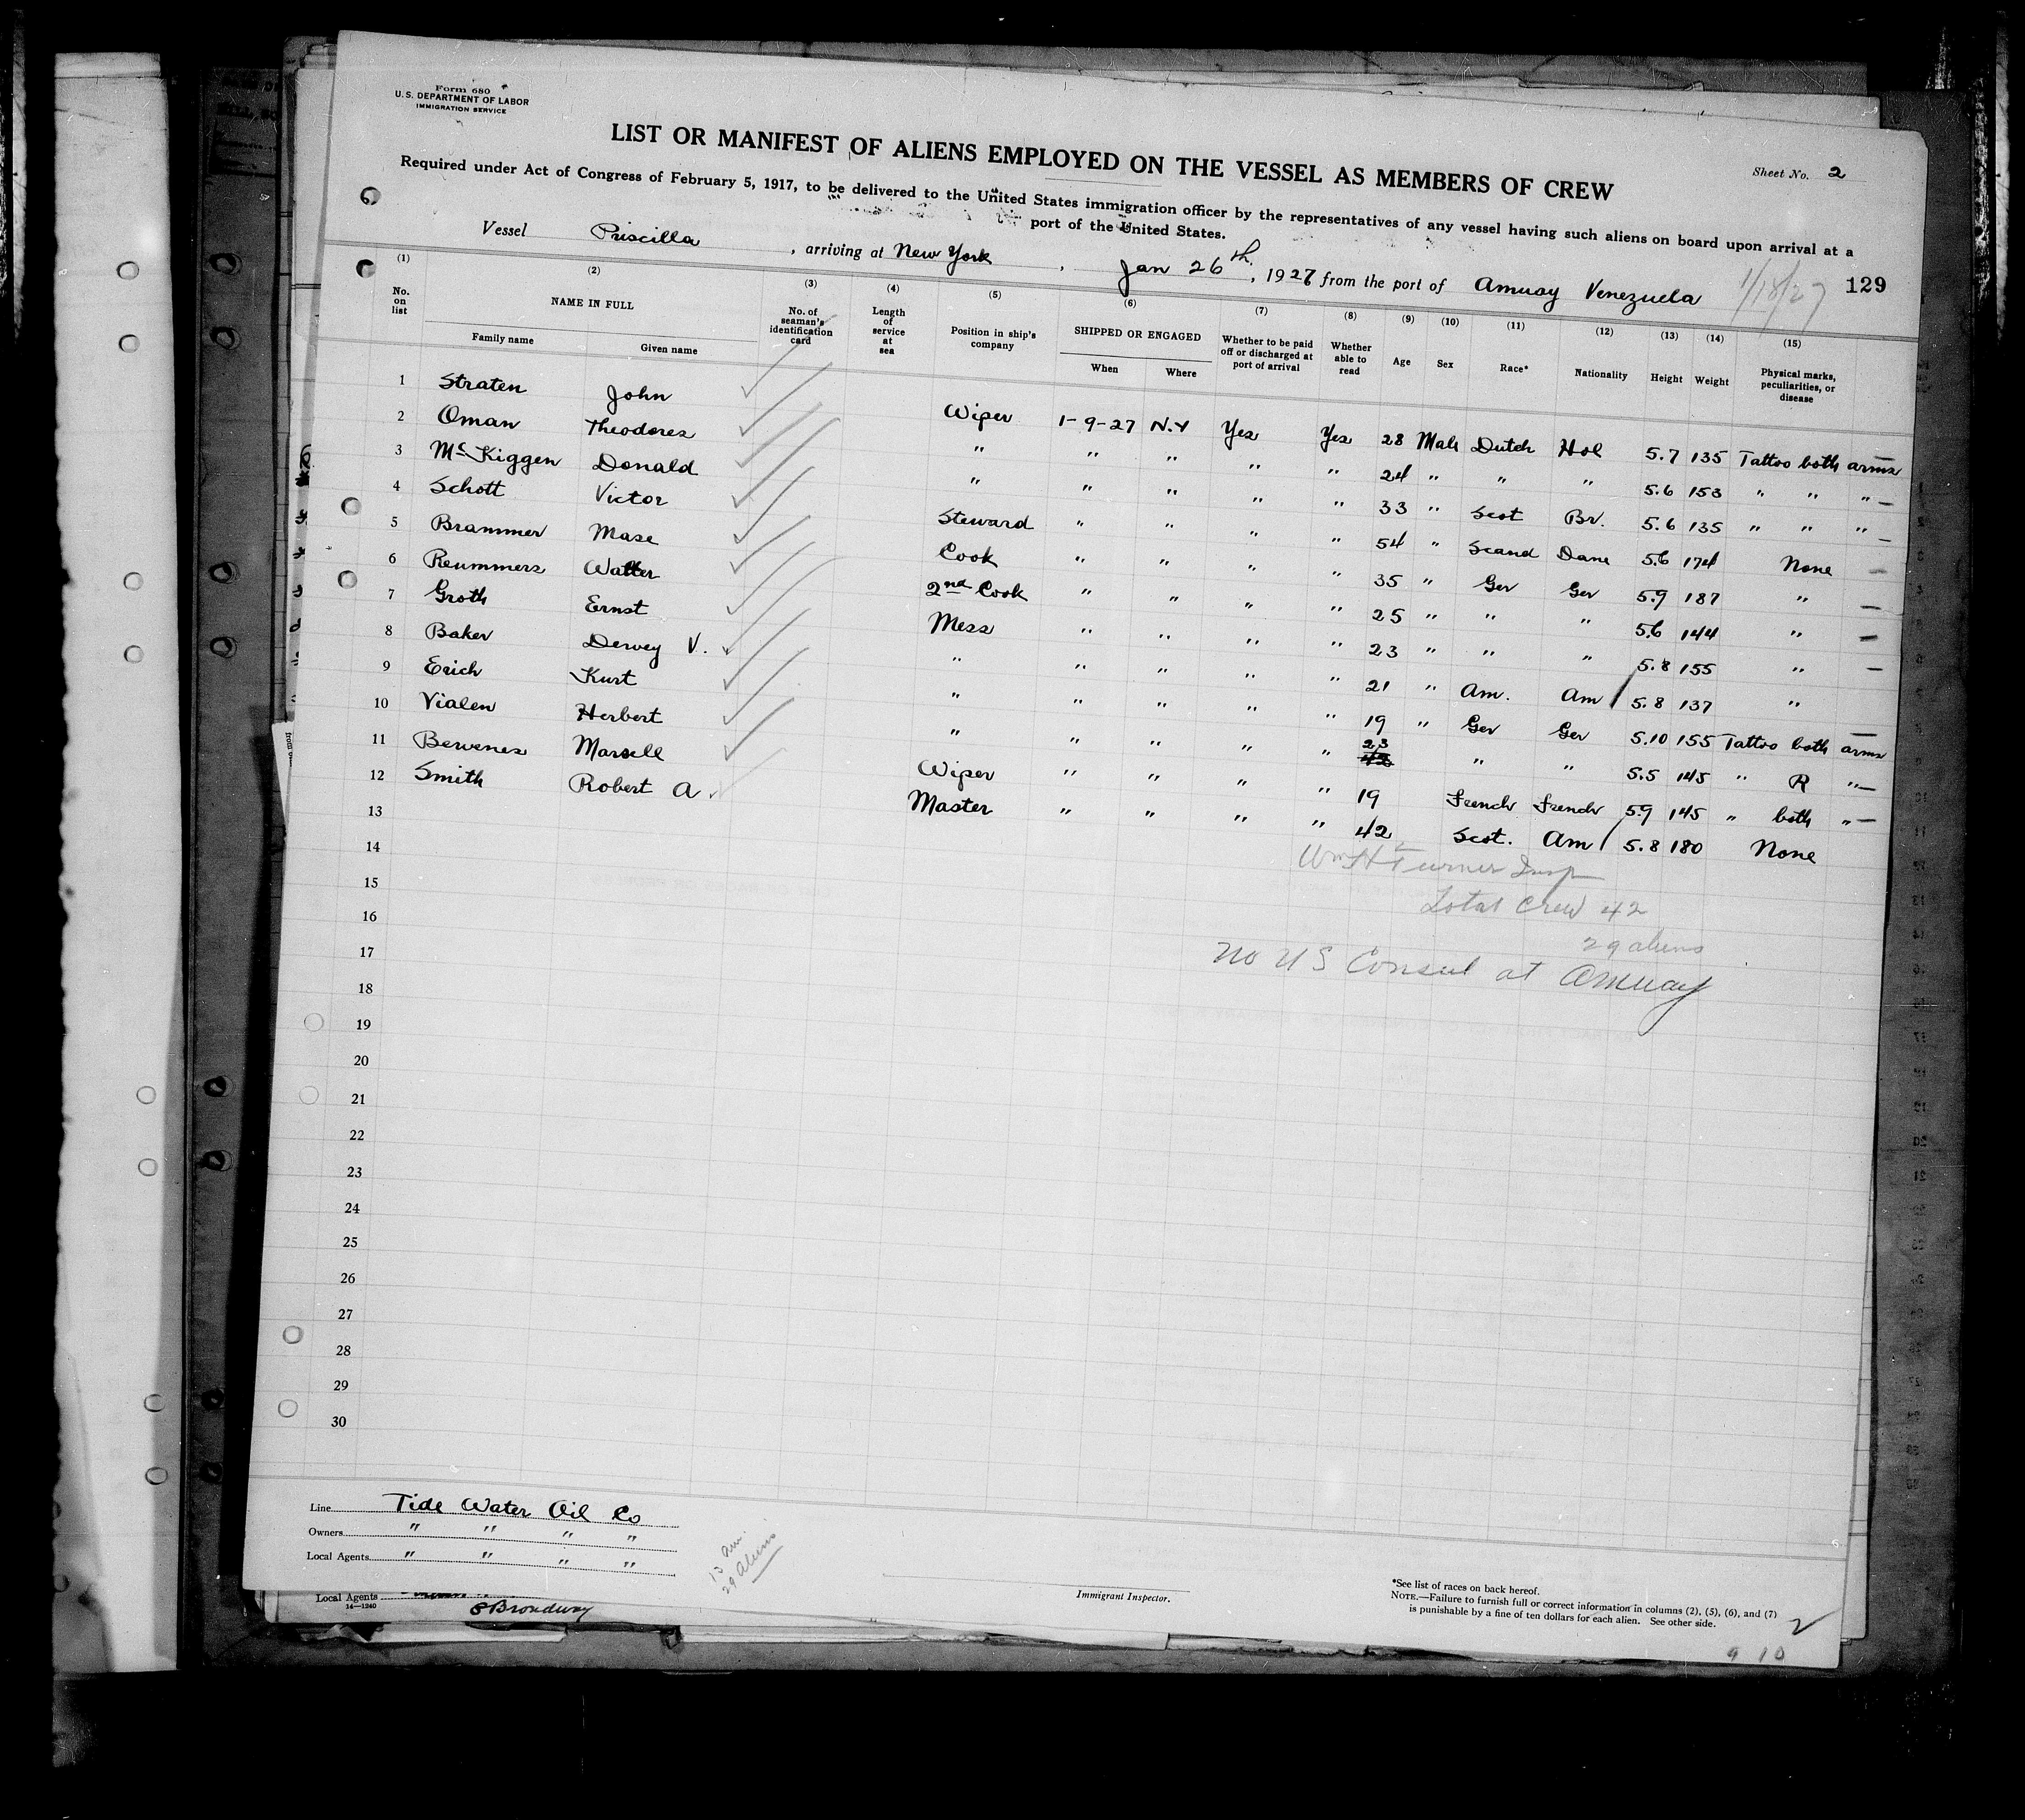 Form 680
U.S. DEPARTMENT OF LABOR
IMMIGRATION SERVICE
LIST OR MANIFEST OF ALIENS EMPLOYED ON THE VESSEL AS MEMBERS OF CREW
Sheet No. 2
Required under Act of Congress of February 5, 1917, to be delivered to the United States immigration officer by the representatives of any vessel having such aliens on board upon arrival at a
port of the United States.
Vessel Priscilla , arriving at New York , Jan 26th , 1927 from the port of Amuay Venezuela 1/18/27 129
(1) (2) (3) (4) (5) (6) (7) (8) (9) (10) (11) (12) (13) (14) (15)
No. on list NAME IN FULL Family name Given name No. of seaman's identification card Length of service at sea Position in ship's company SHIPPED OR ENGAGED When Where Whether to be paid off or discharged at port of arrival Whether able to read Age Sex Race* Nationality Height Weight Physical marks, peculiarities, or disease
1 Straten John Wiper 1-9-27 N.Y Yes Yes 28 Male Dutch Hol 5.7 135 Tattoo both arms
2 Oman Theodores " " " " " 24 " " " 5.6 153 " " "
3 McKiggen Donald " " " " " 33 " Scot Br. 5.6 135 " " "
4 Schott Victor Steward " " " " 54 " Scand Dane 5.6 174 None
5 Brammer Mase Cook " " " " 35 " Ger Ger 5.9 187 "
6 Reummers Walter 2nd Cook " " " " 25 " " " 5.6 144 "
7 Groth Ernst Mess " " " " 23 " " " 5.8 155 "
8 Baker Dewey V. " " " " " 21 " Am. Am 5.8 137 "
9 Erich Kurt " " " " " 19 " Ger Ger 5.10 155 Tattoo both arms
10 Vialen Herbert " " " " " 23 " " 5.5 145 " R "
11 Bewenes Marsell Wiper " " " " 19 French French 5.9 145 " both "
12 Smith Robert A. Master " " " " 42 Scot. Am 5.8 180 None
13
14 Wm H Turner Insp
15 Total Crew 42
16 29 aliens
17 No US Consul at Amuay
18
19
20
21
22
23
24
25
26
27
28
29
30
Line Tide Water Oil Co
Owners " " " "
Local Agents " " " "
13 am
29 aliens
Immigrant Inspector.
*See list of races on back hereof.
NOTE.—Failure to furnish full or correct information in columns (2), (5), (6), and (7)
is punishable by a fine of ten dollars for each alien. See other side.
2
Local Agents
14—1240
8 Broadway
9 10